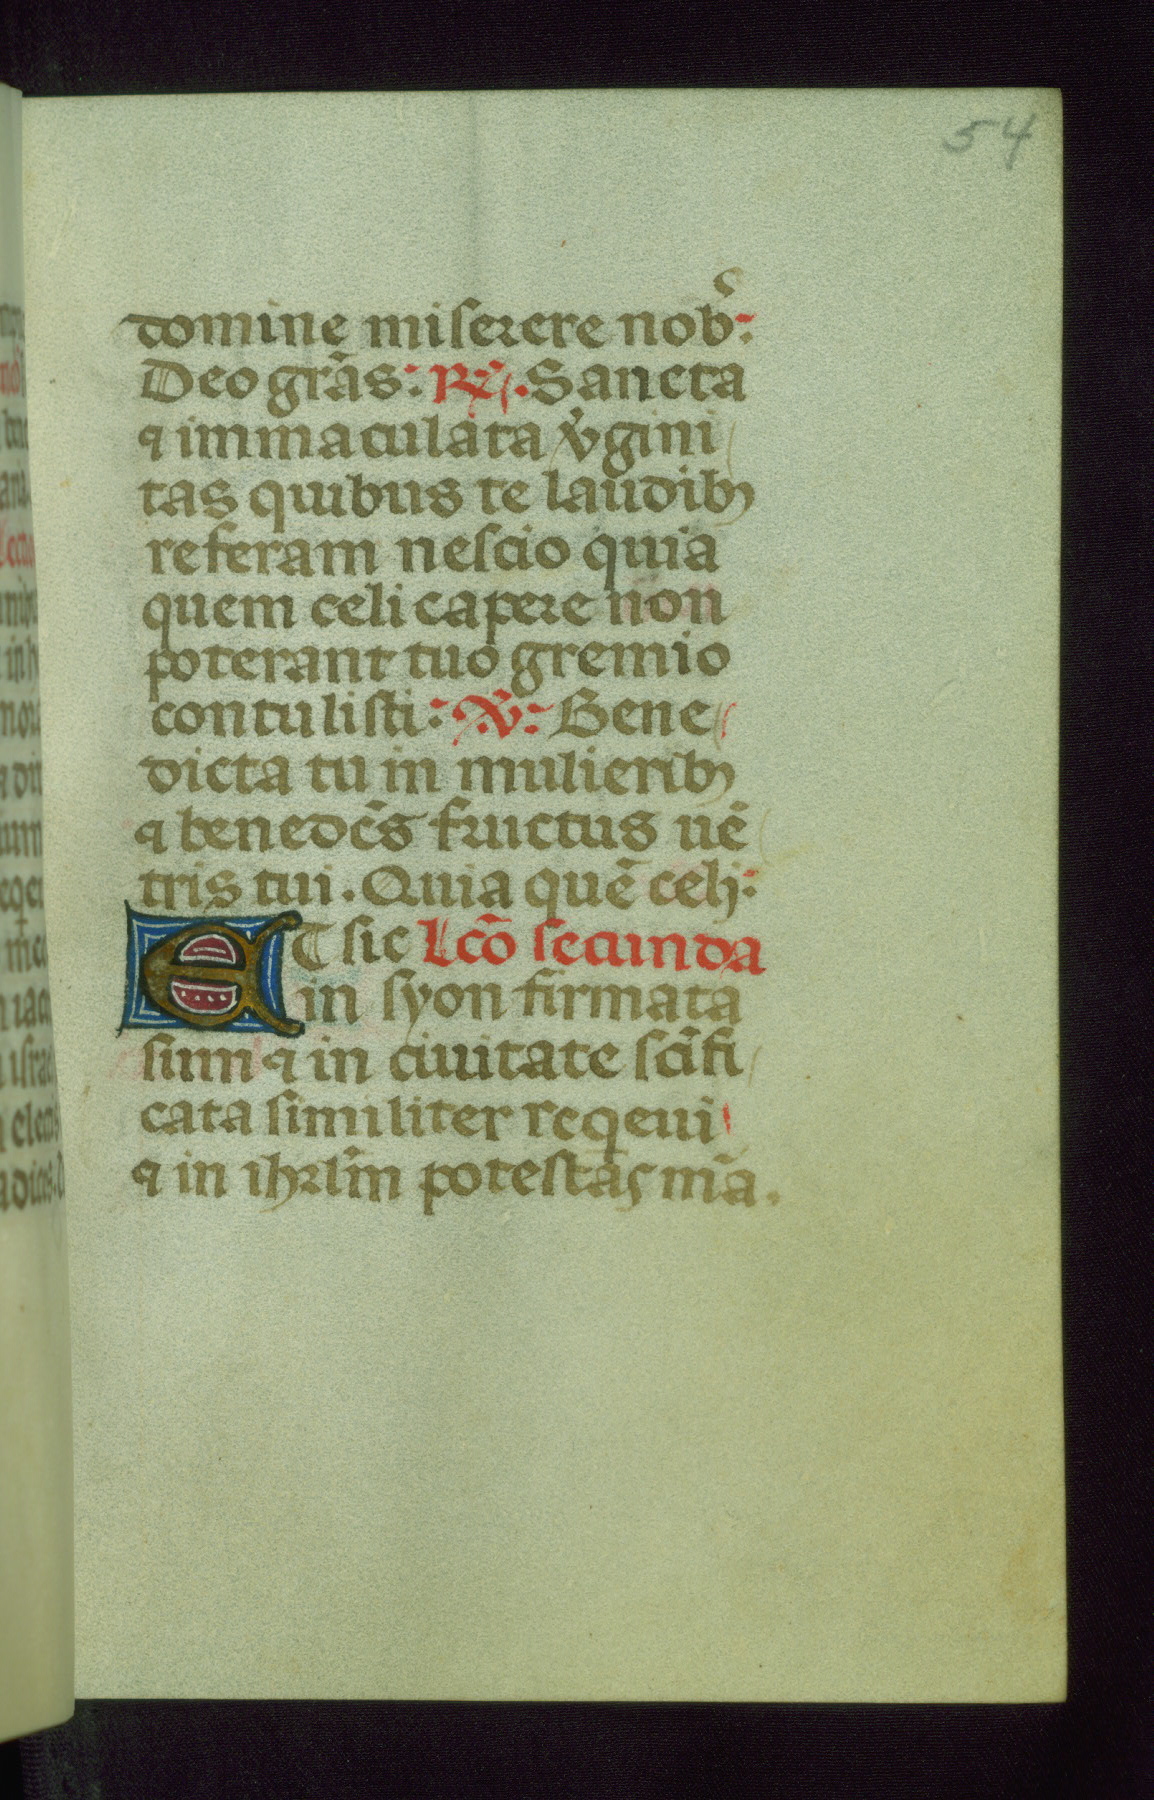 54
domine miserere nob̾:
Deo gr̃as: ℟. Sancta
⁊ immaculata v̾gini
tas quibus te laudibꝫ
referam nescio quia
quem celi capere non
poterant tuo gremio
contulisti: ℣: Bene
dicta tu in mulieribꝫ
⁊ benedc̃s fructus uẽ
tris tui. Quia quẽ celi:
ET sic Lcõ secunda
in syon firmata
sum ⁊ in ciuitate sc̃ifi
cata similiter reqeui
⁊ in ihrlm̃ potestas m̃a.